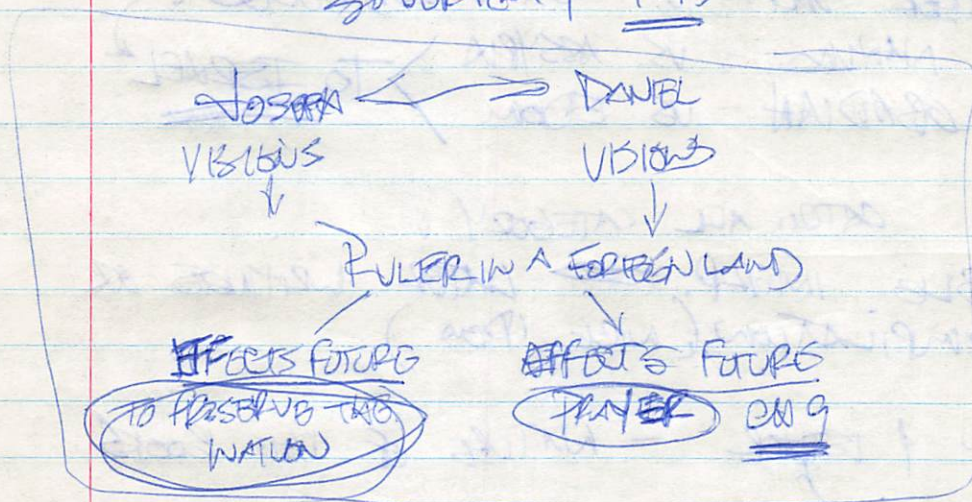 JOSEPH ↔ DANIEL
VISIONS VISIONS
↓ ↓
RULER IN A FOREIGN LAND
EFFECTS FUTURE AFFECTS FUTURE
TO PRESERVE THE PRAYER CH 9
NATION